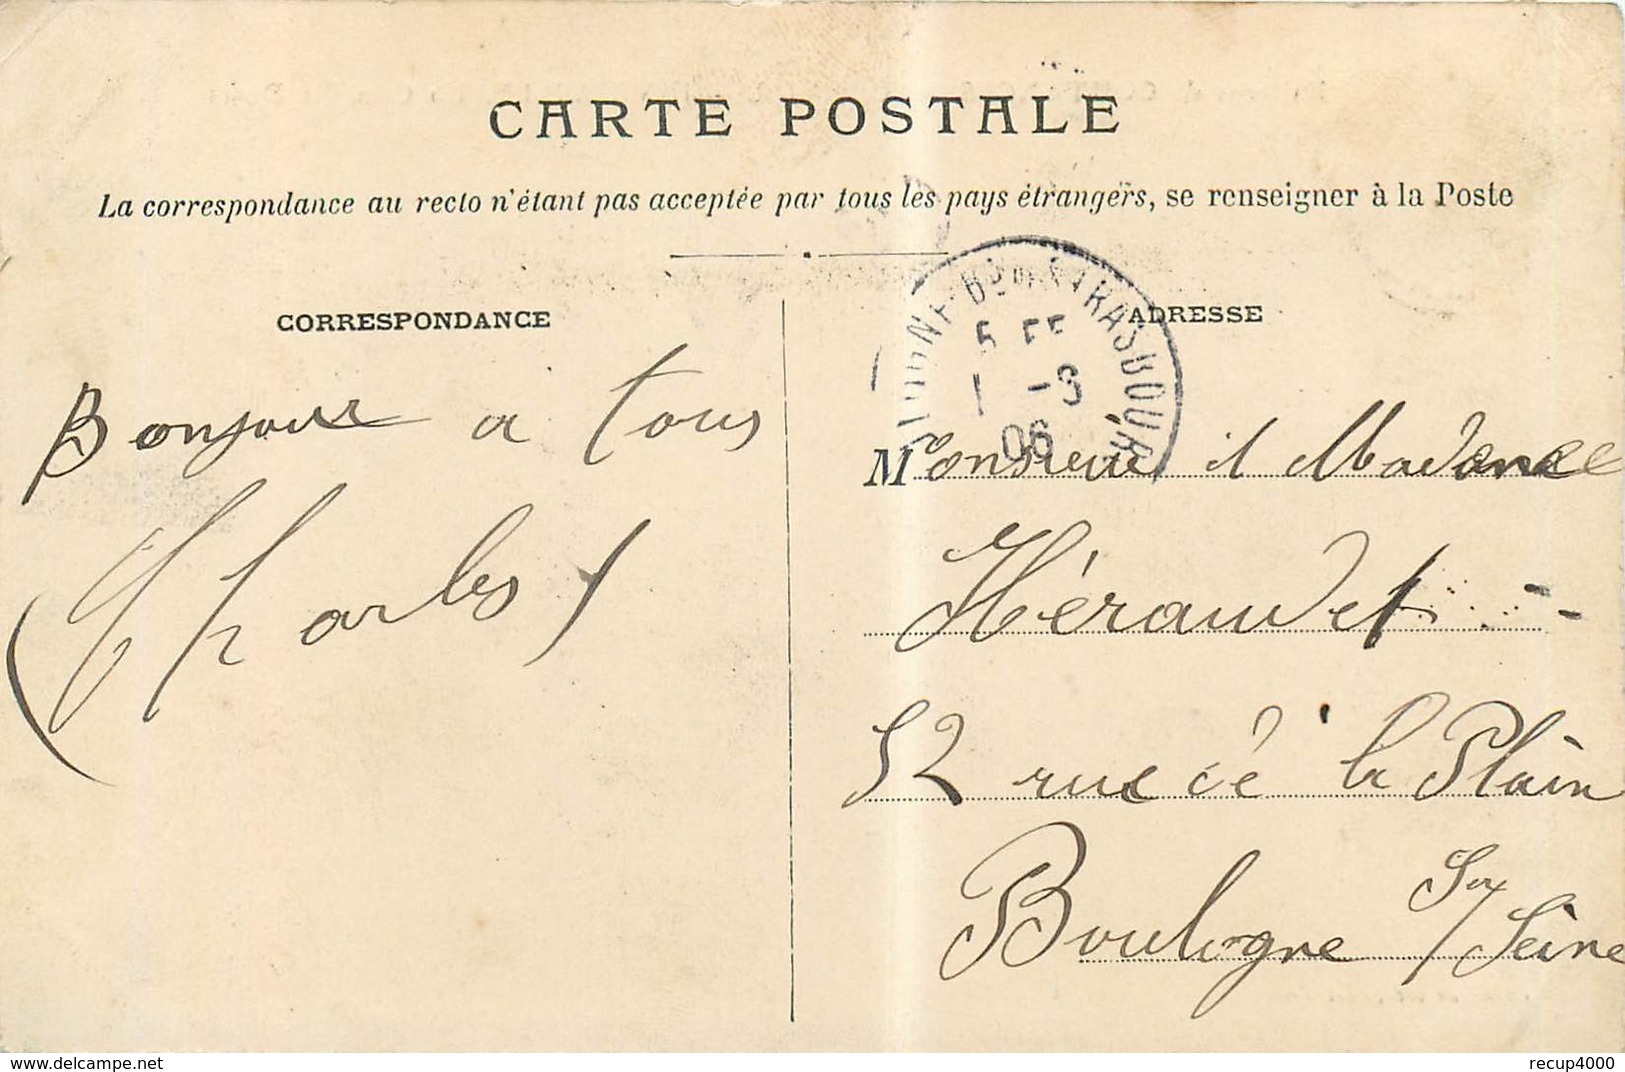 CARTE POSTALE
La correspondance au recto n'étant pas acceptée par tous les pays étrangers, se renseigner à la Poste
CORRESPONDANCE
Bonjour a tous
Charles
ADRESSE
Monsieur et Madame
Héraudet
52 rue de la Plain
Boulogne Sur / Seine
Bd DE STRASBOURG
5 55
1 -8
06
delcampe.net
recup4000